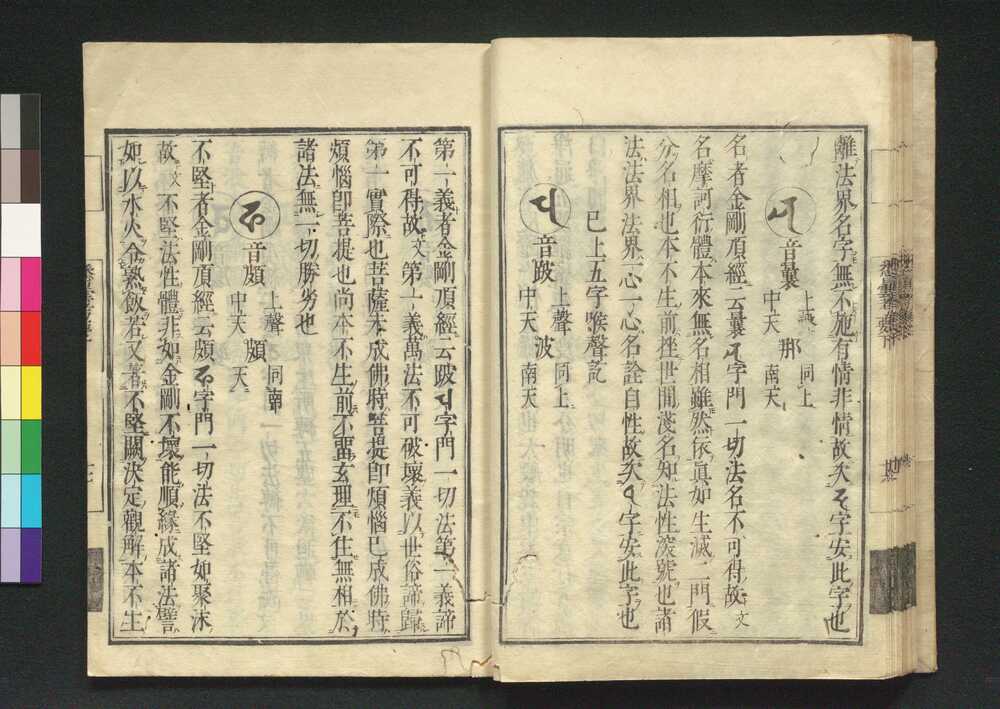 離法界名字無不施有情非情故矣 字安此字也
音曩 上誠 中天 那 同上 南天
名者金剛頂經云曩 字門一切法名不可得故文
名摩訶衍體本來無名相雖然依眞如生滅二門假
分名相也本不生前挫世間淺名知法性深號也諸
法法界法界一心一心名詮自性故矣 字安此字也
已上五字喉聲記
音跛 上聲 中天 波 同上 南天
第一義者金剛頂經云跛 字門一切法第一義諦
不可得故文第一義萬法不可破壞義以世俗諦歸
第一實際也菩薩未成佛時菩提卽煩惱已成佛時
煩惱卽菩提也尚本不生前不畱玄理不住無相於
諸法無一切勝劣也
音頗 上聲 中天 頗 同南天
不堅者金剛頂經云頗 字門一切法不堅如聚沫
故文不堅法性體非如金剛不壞能順緣成諸法譬
如以水火令熟飯若又著不堅關決定觀解本不生